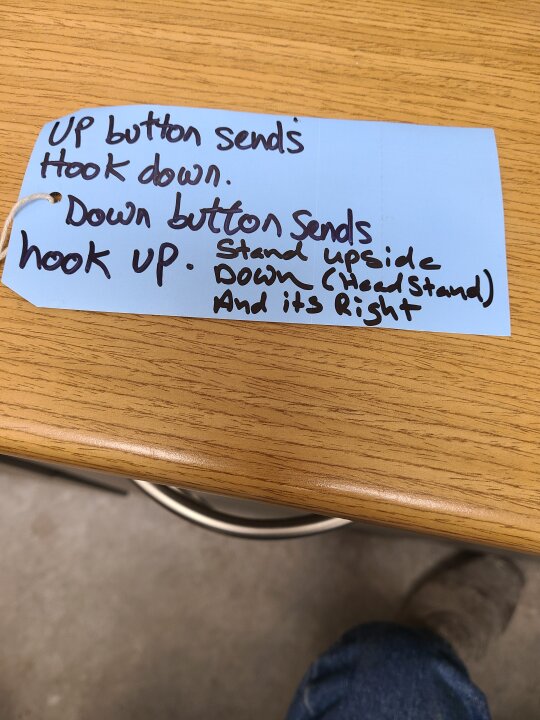 UP button sends
Hook down.
Down button sends
hook up.
Stand upside
DOWN (HeadStand)
And its Right